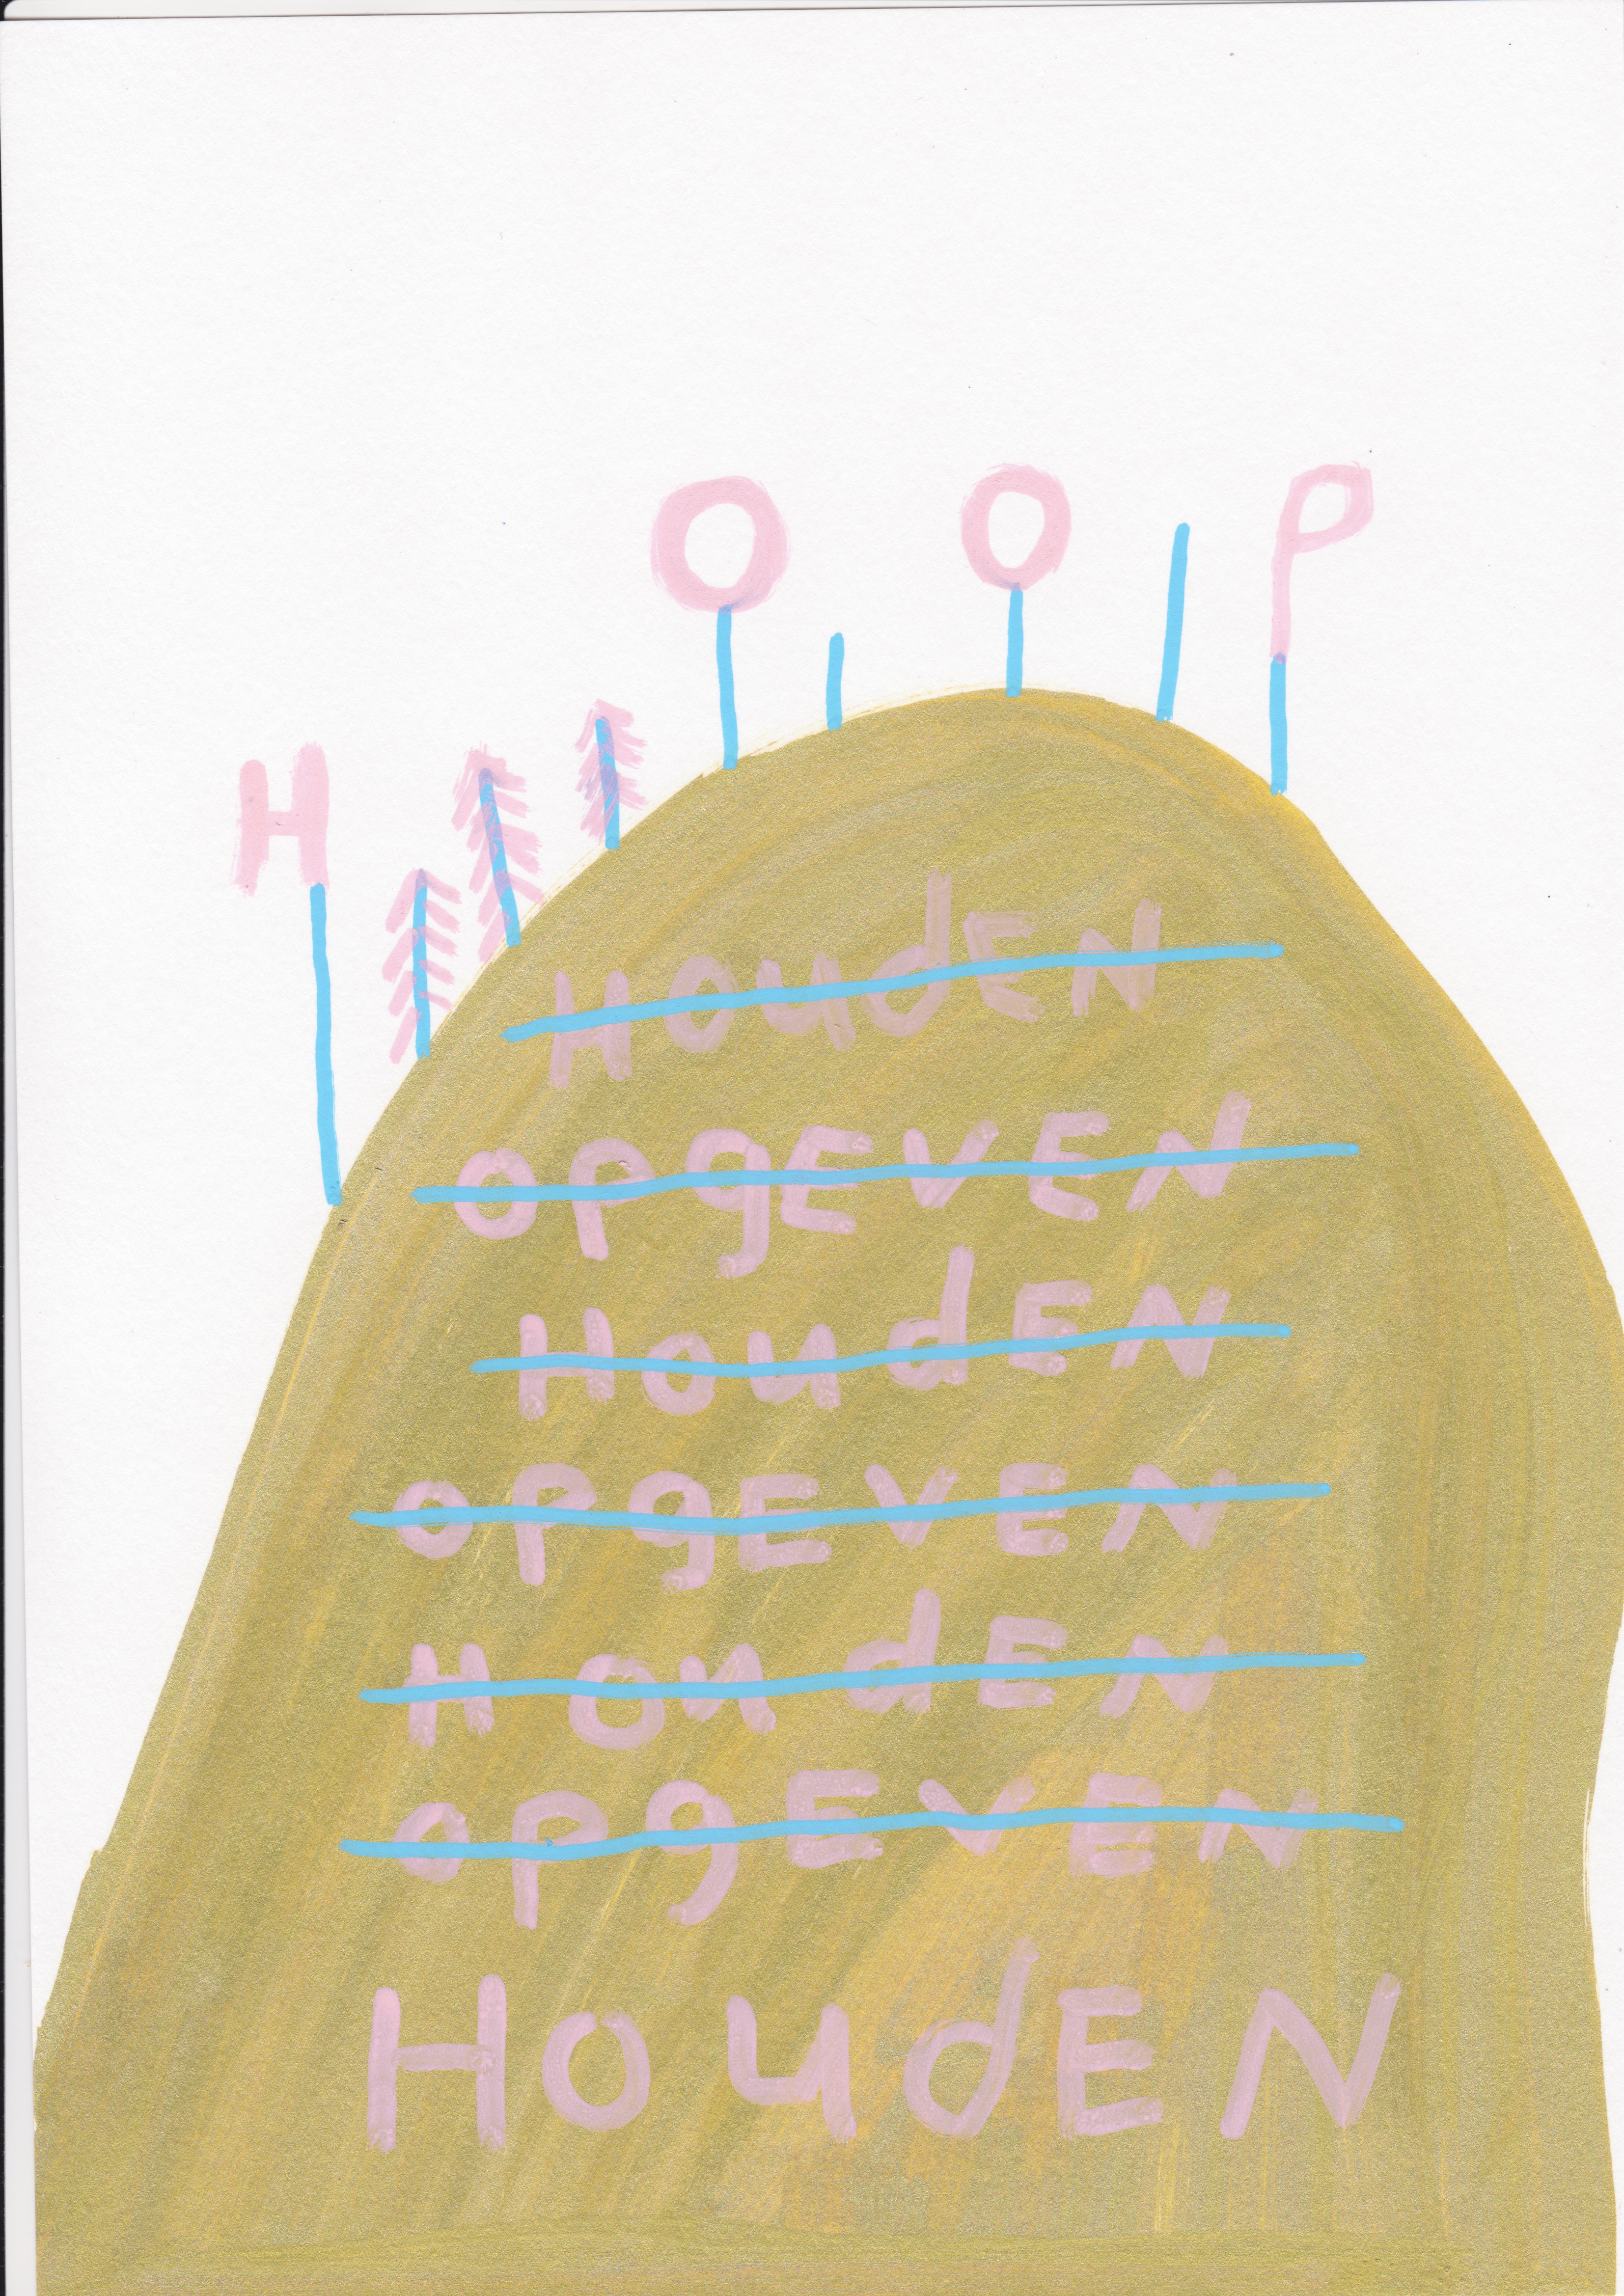 HOOP
HoudEN
opgEVEN
HoudEN
opgEVEN
HoudEN
opgEVEN
HoudEN